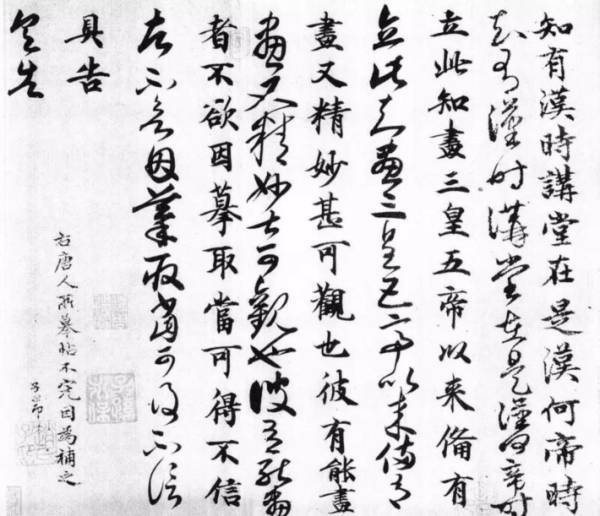 知有漢時講堂在是漢何帝時
知有漢時講堂在是漢何帝時
立此知畫三皇五帝以來俻有
立此知畫三皇五帝以來俻有
畫又精妙甚可觀也彼有能畫
畫又精妙甚可觀也彼有能畫
者不欲因摹取當可得不信
者不欲因摹取當可得不信
具告
具告
右唐人所摹帖不完因為補之
子昂